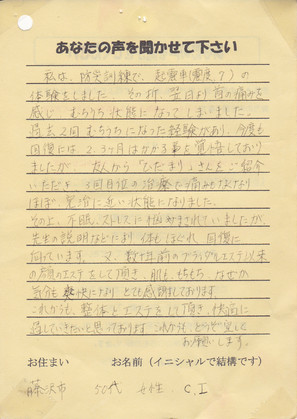 あなたの声を聞かせて下さい
私は、防災訓練で、起震車(震度7)の
体験をしました。その折、翌日より首の痛みを
感じ、むちうち状態になってしまいました。
過去2回むちうちになった経験があり、今度も
回復には、2、3ヶ月はかかる事を覚悟しており
ましたが、友人から「ひだまり」さんをご紹介
いただき、3回目位の治療で痛みもなくなり
ほぼ完治に近い状態になりました。
その上、不眠、ストレスに悩まされていましたが、
先生の説明などにより体もほぐれ、回復に
向っています。又、数十年前のブライダルエステ以来
の顔のエステをして頂き、肌も、もちもち、なぜか
気分も爽快になり とても感謝しております。
これからも、整体とエステをして頂き、快適に
過していきたいと思っております。これからも、どうぞ宜しく
お願いします。
お住まい お名前(イニシャルで結構です)
藤沢市 50代 女性 C.I